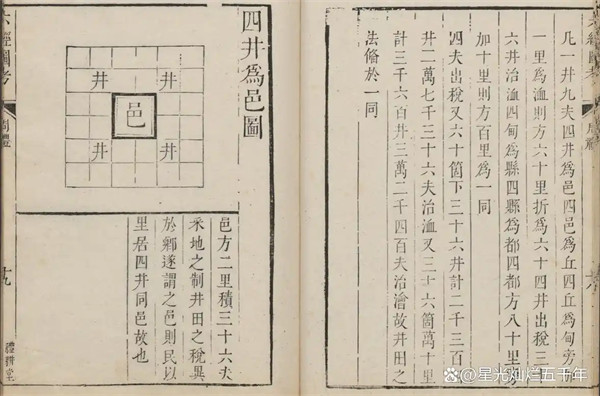 凡一井九夫四井爲邑四邑爲丘四丘爲甸旁加
一里爲洫則方六十里折爲六十四井出稅三十
六井治洫四甸爲縣四縣爲都四都方八十里旁
加十里則方百里爲一同
四夫出稅又六十箇下三十六井計二千三百四
井二萬七千三十六夫治洫又三十六箇萬十里
計三千六百井三萬二千四百夫治澮故井田之
法備於一同
六經圖考
周禮
四井爲邑圖
井 井
邑
井 井
邑方二里積三十六夫
釆地之制井田之稅異
於鄉遂謂之邑則民以
里居四井同邑故也
六經圖考
周禮
十九
禮耕堂
星光灿烂五千年